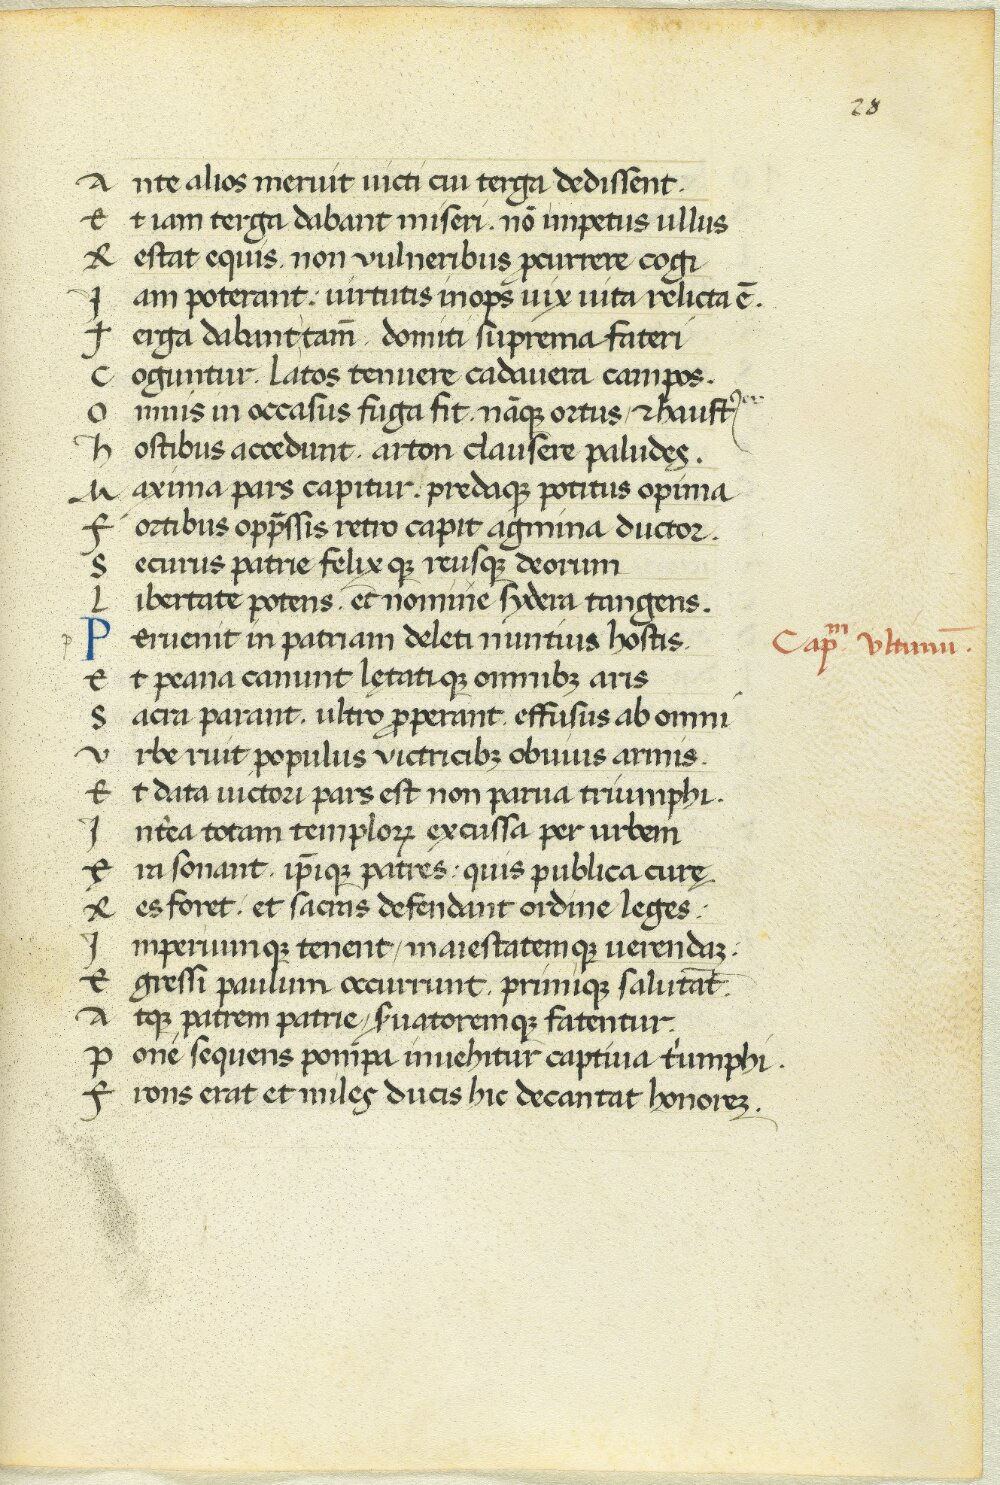 28
Ante alios meruit uicti cui terga dedissent.
Et iam terga dabant miseri. nō impetus ullus
Restat equis. non vulneribus ꝑcurrere cogi
Iam poterant: uirtutis inops uix uita relicta ē.
Terga dabant tam̄. domiti suprema fateri
Coguntur. Latos tenuere cadauera campos.
Omnis in occasus fuga fit. nāqꝫ ortus / ⁊ haust
Hostibus accedunt. arton clausere paludes.
Maxima pars capitur. predaqꝫ potitus opima
Fortibus opp̄ssis retro capit agmina ductor.
Securus patrie felix qꝫ reusqꝫ deorum
Libertate potens. et nomine sydera tangens.
Peruenit in patriam deleti nuntius hostis.
Cap.ᵐ Vltimū.
Et peana canunt lętati qꝫ omnibꝫ aris
Sacra parant. ultro ꝓperant. effusus ab omni
Vrbe ruit populus victricibꝫ obuius armis.
Et data uictori pars est non parua triumphi.
Int̓ea totam temploꝝ excussa per urbem
Era sonant. ip̄iqꝫ patres: quis publica curę
Res foret. et sacras defendant ordine leges.
Imperiumqꝫ tenent / maiestatemqꝫ uerendaꝫ:
Egressi paulum occurrunt. primiqꝫ salutāt.
Atqꝫ patrem patrie / s̓uatoremqꝫ fatentur.
Pone sequens pompa inuehitur captiua t̓umphi.
Frons erat et miles ducis hic decantat honoreꝫ.